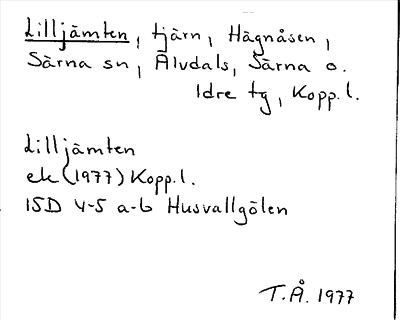 Lilljämten, tjärn, Hägnåsen,
Särna sn, Älvdals, Särna o.
Idre tg, Kopp. l.
Lilljämten
ek (1977) Kopp. l.
15D 4-5 a-b Husvallgölen
T.Å. 1977